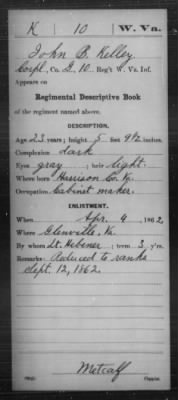 K | 10 | W. Va.
John B. Kelley
Corpl., Co. D, 10 Reg't W. Va. Inf.
Appears on
Regimental Descriptive Book
of the regiment named above.
DESCRIPTION.
Age 23 years; height 5 feet 9½ inches.
Complexion dark
Eyes gray; hair light.
Where born Harrison Co. Va.
Occupation Cabinet maker.
ENLISTMENT.
When Apr. 9, 1862.
Where Glenville, Va.
By whom Lt. Hebener; term 3 y'rs.
Remarks: Reduced to ranks
Sept. 12, 1862.
Metcalf
Copyist.